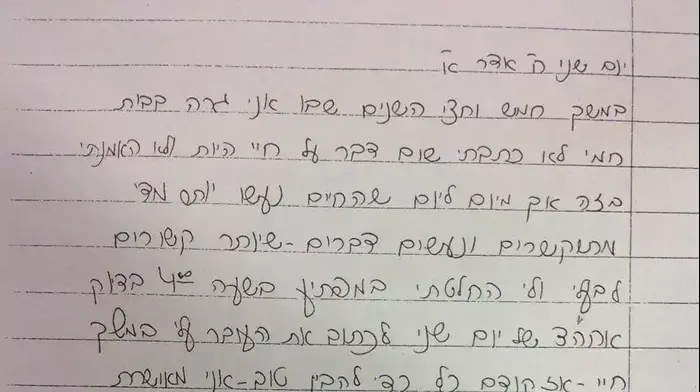 יום שני ה' אדר א'
במשך חמש וחצי השנים שבו אני גרה בבות
חמי לא כתבתי שום דבר על חיי היות ולא האמנתי
בזה אך מיום ליום שהחיים נעשו יותר מדי
מתוקשרים ונעשים דברים - שיותר קשורים
לבעלי ולי החלטתי במפתיע בשעה 4⁰⁰ בדיוק
אחה"צ של יום שני לכתוב את העובר עלי במשך
חיי - אז קודם כל כדי להבין טוב - אני מאושרת